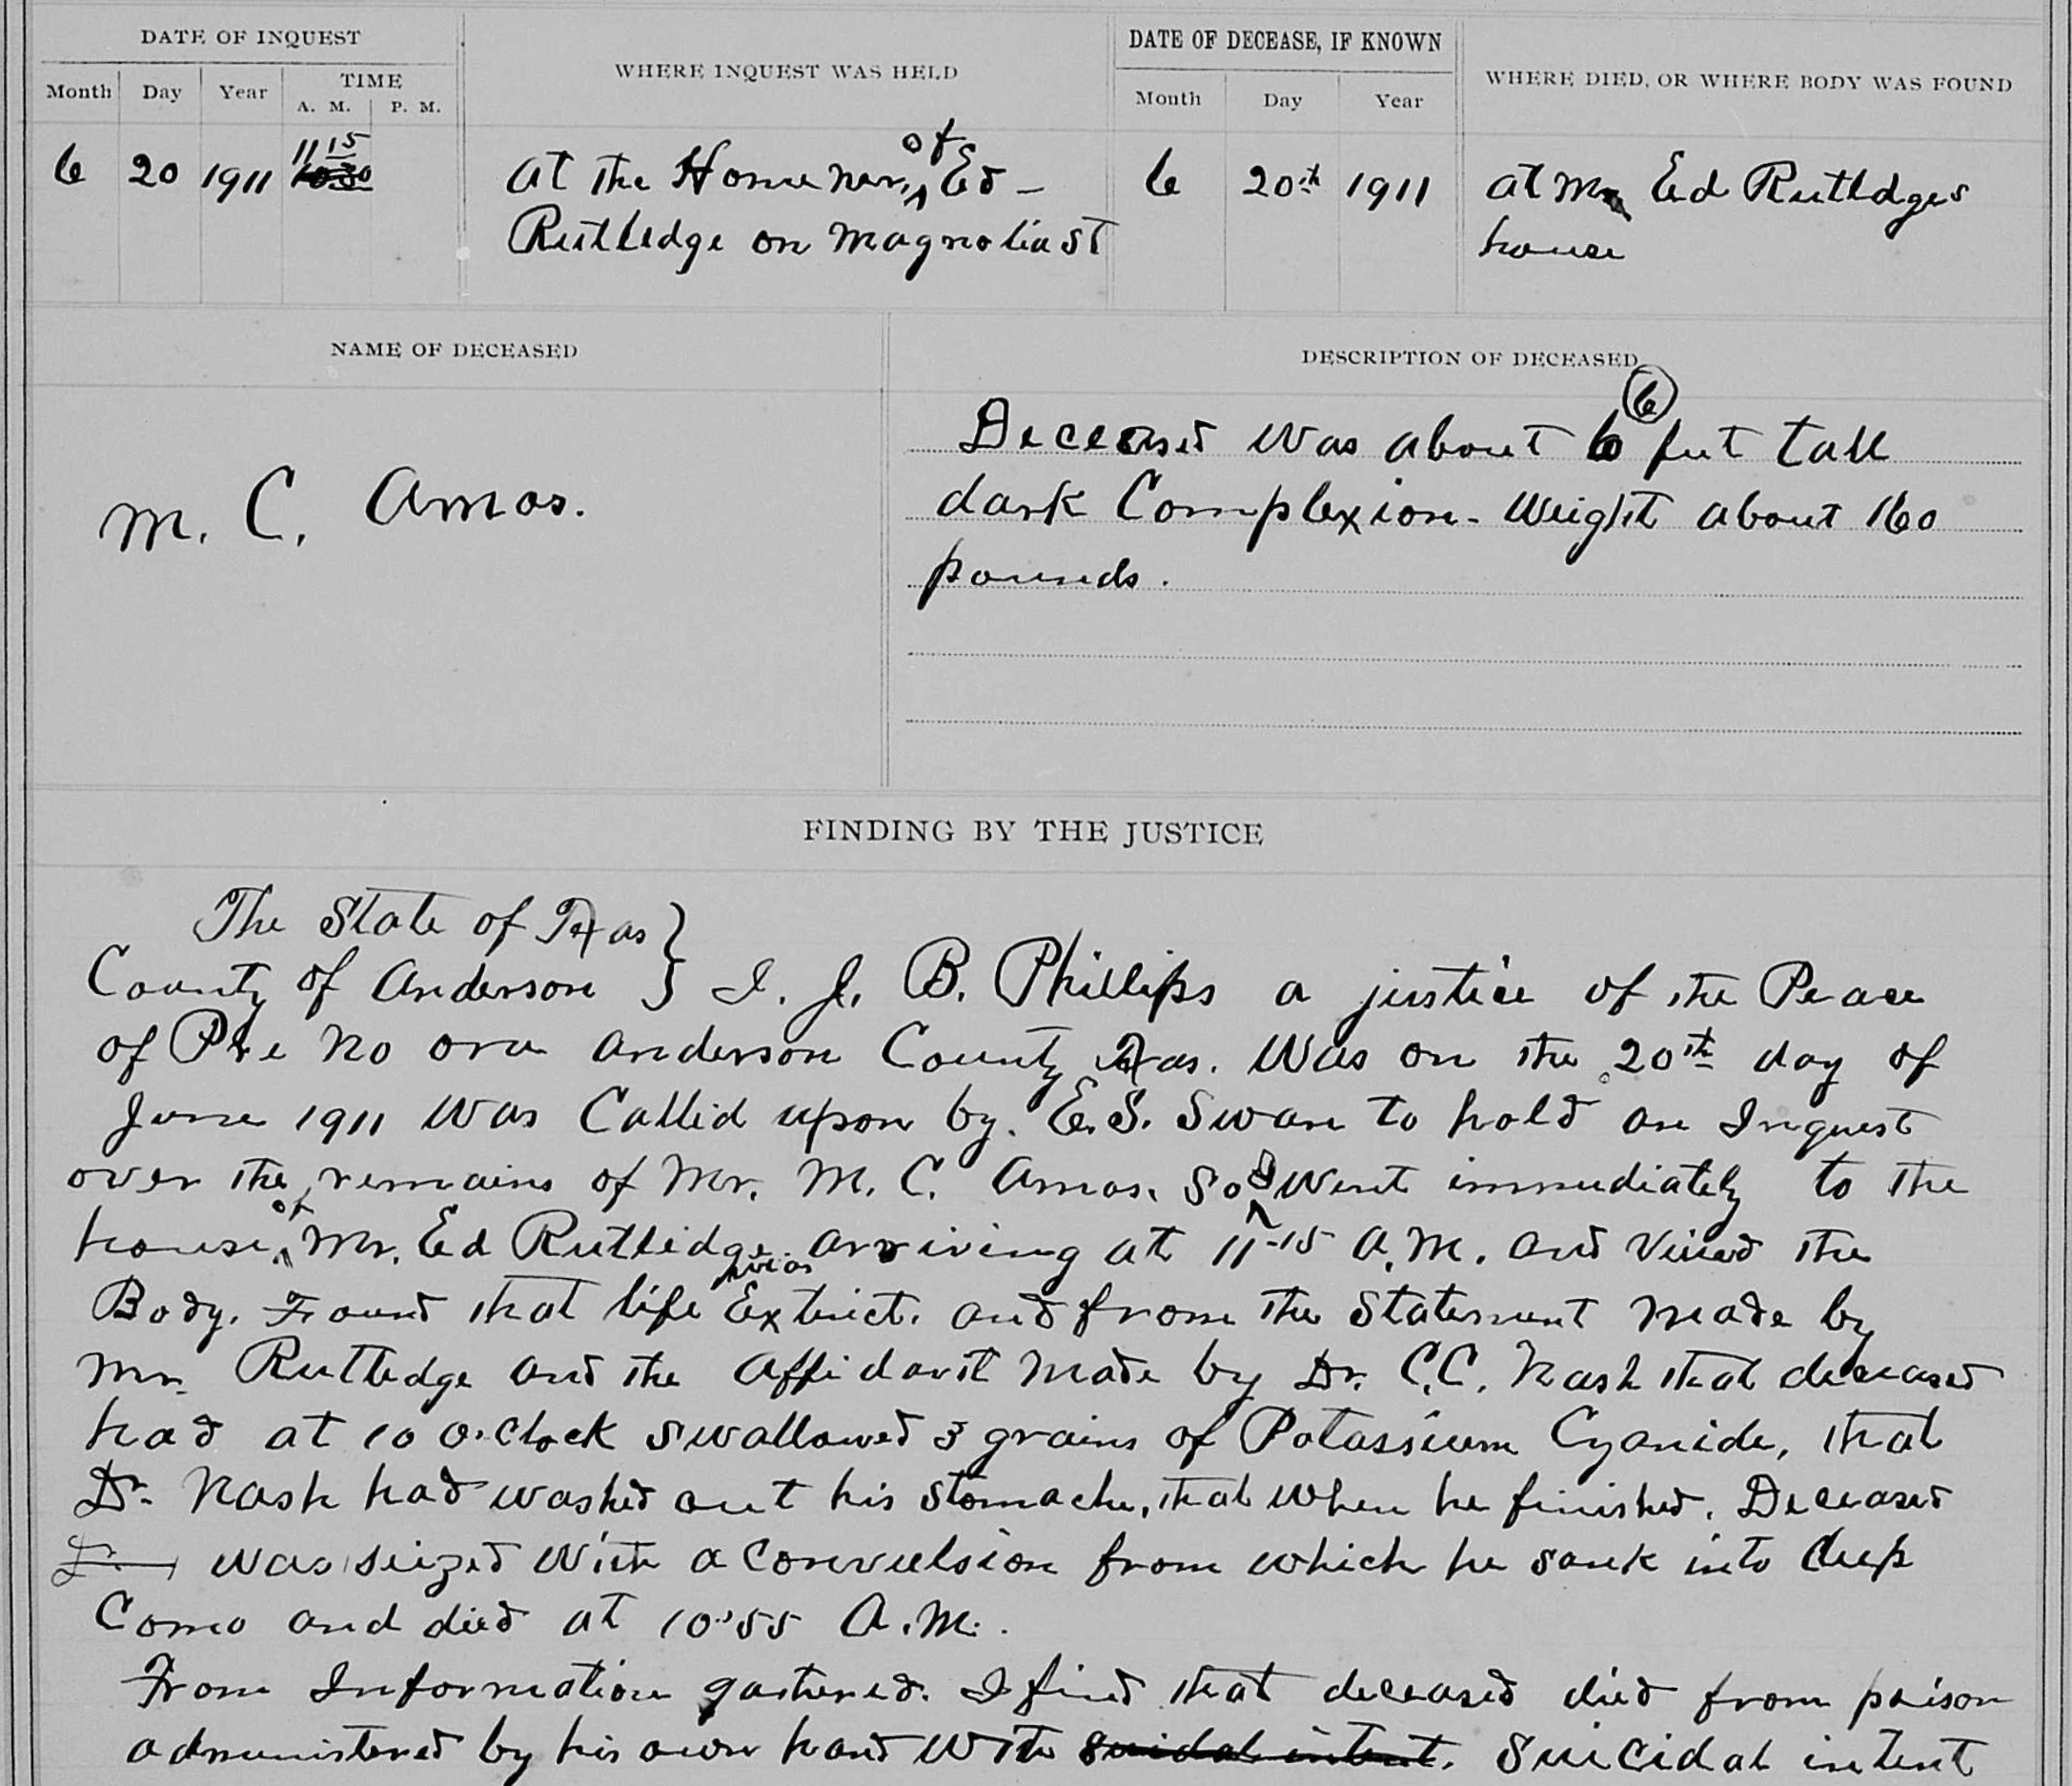 DATE OF INQUEST
WHERE INQUEST WAS HELD
DATE OF DECEASE, IF KNOWN
WHERE DIED, OR WHERE BODY WAS FOUND
Month Day Year TIME A. M. P. M.
Month Day Year
6 20 1911 11 15 10 30
at the Home Mr. of Ed -
Rutledge on Magnolia St
6 20th 1911
at Mr Ed Rutledges
house
NAME OF DECEASED
M. C. Amos.
DESCRIPTION OF DECEASED
6
Deceased was about 6 feet tall
dark Complexion - Weight about 160
pounds.
FINDING BY THE JUSTICE
The State of Texas }
County of Anderson } I. J. B. Phillips a justice of the Peace
of Pre No one Anderson County Texas. Was on the 20th day of
June 1911 was Called upon by. E. S. Swan to hold an Inquest
over the remains of Mr. M. C. Amos. So I went immediately to the
house of Mr. Ed Rutledge. arriving at 11-15 A.M. and Viewed the
Body. Found that life was Extinct. and from the Statement Made by
Mr. Rutledge and the Affidavit Made by Dr. C.C. Nash that deceased
had at 10 o.clock swallowed 3 grains of Potassium Cyanide, that
Dr. Nash had washed out his stomache, that when he finished. Deceased
was seized with a Convulsion from which he sank into deep
Coma and died at 10:55 A.M.
From Information gathered. I find that deceased died from poison
administered by his own hand with suidal intent. Suicidal intent